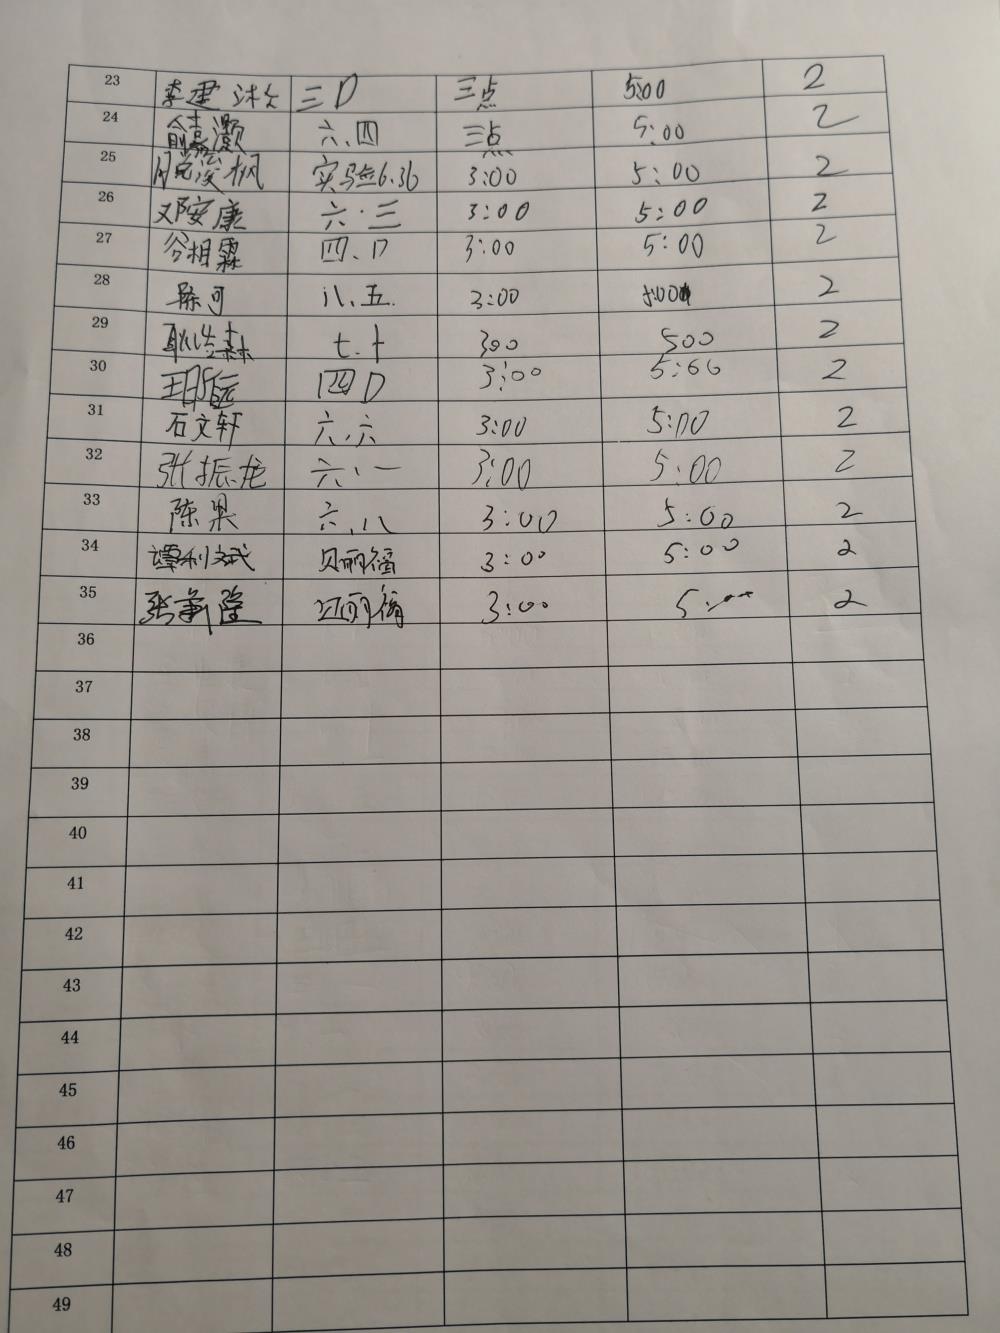 23 李建 三D 三点 5:00 2
24 俞嘉灏 六、四 三点 5:00 2
25 凌枫 实验6.36 3:00 5:00 2
26 邓安康 六·三 3:00 5:00 2
27 谷相霖 四、D 3:00 5:00 2
28 陈可 八、五 3:00 2
29 森 七、十 300 500 2
30 王 四D 3:00 5:00 2
31 石文轩 六、六 3:00 5:00 2
32 张振龙 六、一 3:00 5:00 2
33 陈果 六、八 3:00 5:00 2
34 谭利斌 贝丽福 3:00 5:00 2
35 张 丽 3:00 5:00 2
36
37
38
39
40
41
42
43
44
45
46
47
48
49